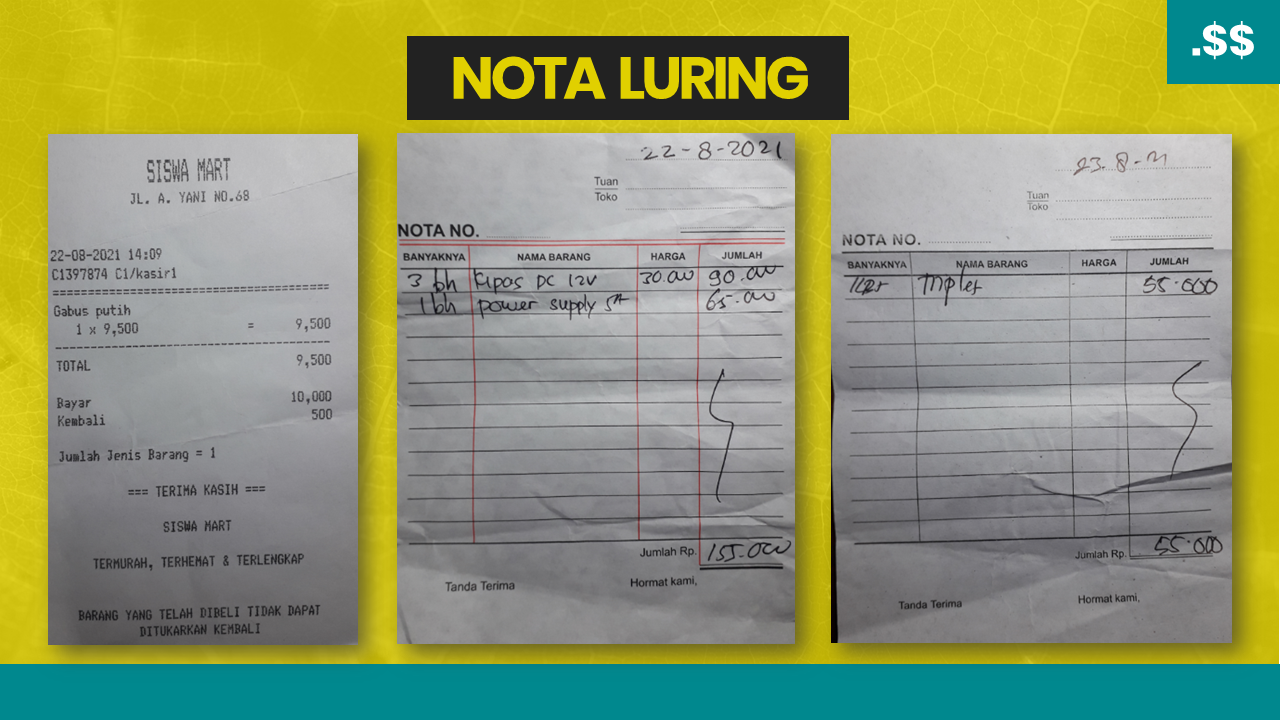 .$$
NOTA LURING
SISWA MART
JL. A. YANI NO.68
22-08-2021 14:09
C1397874 C1/kasir1
Gabus putih
1 x 9,500 = 9,500
TOTAL 9,500
Bayar 10,000
Kembali 500
Jumlah Jenis Barang = 1
=== TERIMA KASIH ===
SISWA MART
TERMURAH, TERHEMAT & TERLENGKAP
BARANG YANG TELAH DIBELI TIDAK DAPAT
DITUKARKAN KEMBALI
22-8-2021
Tuan
Toko
NOTA NO.
BANYAKNYA NAMA BARANG HARGA JUMLAH
3 bh Kipas DC 12V 30.000 90.000
1 bh power supply 5A 65.000
Jumlah Rp. 155.000
Tanda Terima Hormat kami,
23-8-21
Tuan
Toko
NOTA NO.
BANYAKNYA NAMA BARANG HARGA JUMLAH
Triplek 55.000
Jumlah Rp. 55.000
Tanda Terima Hormat kami,